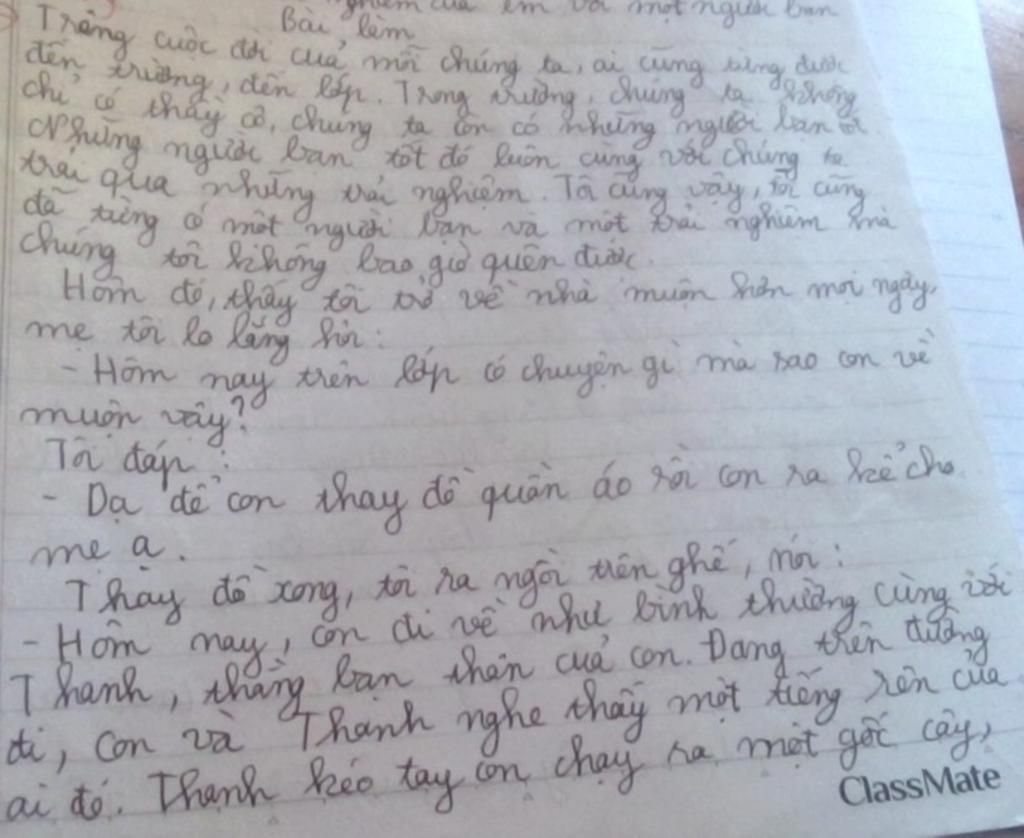 nghiệm của em với một người bạn
Bài làm
Trong cuộc đời của mỗi chúng ta, ai cũng từng được
đến trường, đến lớp. Trong trường, chúng ta không
chỉ có thầy cô, chúng ta còn có những người bạn tốt.
Những người bạn tốt đó luôn cùng với chúng ta
trải qua những trải nghiệm. Tôi cũng vậy, tôi cũng
đã từng có một người bạn và một trải nghiệm mà
chúng tôi không bao giờ quên được.
Hôm đó, thấy tôi trở về nhà muộn hơn mọi ngày,
mẹ tôi lo lắng hỏi:
- Hôm nay trên lớp có chuyện gì mà sao con về
muộn vậy?
Tôi đáp:
- Dạ để con thay đồ quần áo rồi con ra kể cho
mẹ ạ.
Thay đồ xong, tôi ra ngồi trên ghế, nói:
- Hôm nay, con đi về như bình thường cùng với
Thanh, thằng bạn thân của con. Đang trên đường
đi, con và Thanh nghe thấy một tiếng rên của
ai đó. Thanh kéo tay con chạy ra một gốc cây,
ClassMate